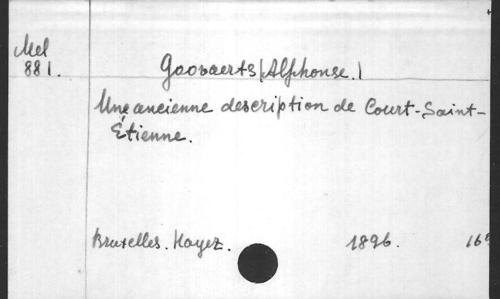 Mel
881.
Goovaerts (Alphonse.)
Une ancienne description de Court-Saint-
Étienne.
Bruxelles. Hayez. 1896. 16°